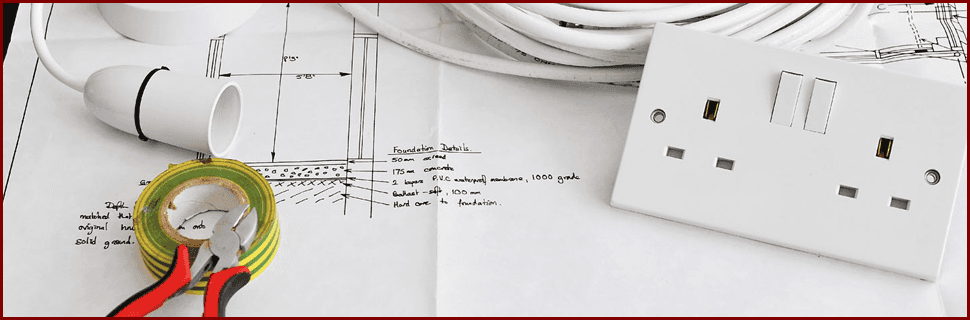 8'3"
Foundation Details
50mm screed
175mm concrete
2 layers P.V.C waterproof membrane, 1000 grade
Ballast - soft, 100mm
Hard core to foundation.
matched that
original
solid ground.